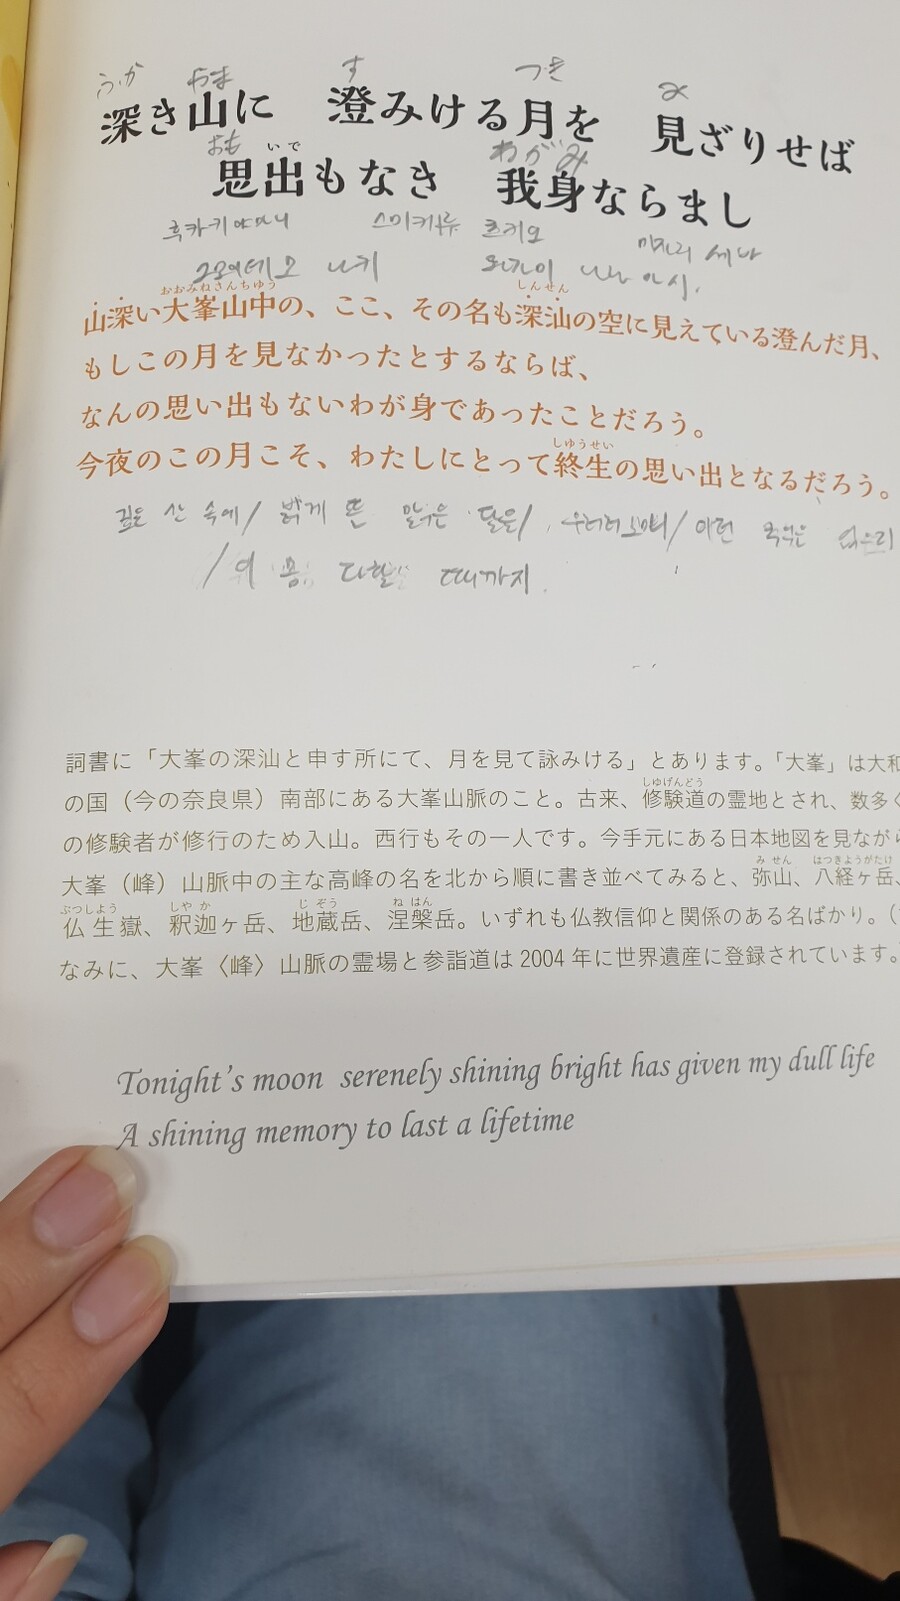 ふか やま す つき み
深き山に 澄みける月を 見ざりせば
おも いで わがみ
思出もなき 我身ならまし
후카키 야마니 스미케류 츠키오
미자리 세바
오모이데모 나키 와가미 나라마시.
おおみねさんちゆう しんせん
山深い大峯山中の、ここ、その名も深汕の空に見えている澄んだ月、
もしこの月を見なかったとするならば、
なんの思い出もないわが身であったことだろう。
しゆうせい
今夜のこの月こそ、わたしにとって終生の思い出となるだろう。
깊은 산 속에/ 밝게 뜬 맑은 달은/ 이런
/이 몸 다할 때까지.
詞書に「大峯の深汕と申す所にて、月を見て詠みける」とあります。「大峯」は大和
しゆげんどう
の国（今の奈良県）南部にある大峯山脈のこと。古来、修験道の霊地とされ、数多く
の修験者が修行のため入山。西行もその一人です。今手元にある日本地図を見ながら
み せん はつきようがたけ
大峯（峰）山脈中の主な高峰の名を北から順に書き並べてみると、弥山、八経ヶ岳、
ぶつしよう しや か じ ぞう ね はん
仏生嶽、釈迦ヶ岳、地蔵岳、涅槃岳。いずれも仏教信仰と関係のある名ばかり。（
なみに、大峯〈峰〉山脈の霊場と参詣道は2004年に世界遺産に登録されています。
Tonight's moon serenely shining bright has given my dull life
A shining memory to last a lifetime